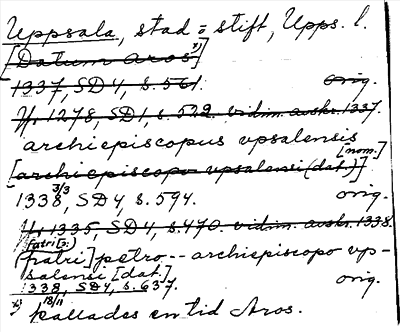 Uppsala, stad o stift, Upps. l.
[Datum Aros¹⁾]
1337, SD4, s. 561. orig.
Yr 1278, SD1, s. 522. vidim. avskr. 1337.
archiepiscopus vpsalensis
[nom.]
[archiepiscopo vpsalensi (dat.)]
1338 3/3, SD4, s. 594. orig.
Yr 1335, SD4, s. 470. vidim. avskr. 1338
(fratri]petro --- archiepiscopo vp-
salensi [dat.]
1338, SD4, s. 637. orig.
18/11
¹⁾ kallades en tid Aros.